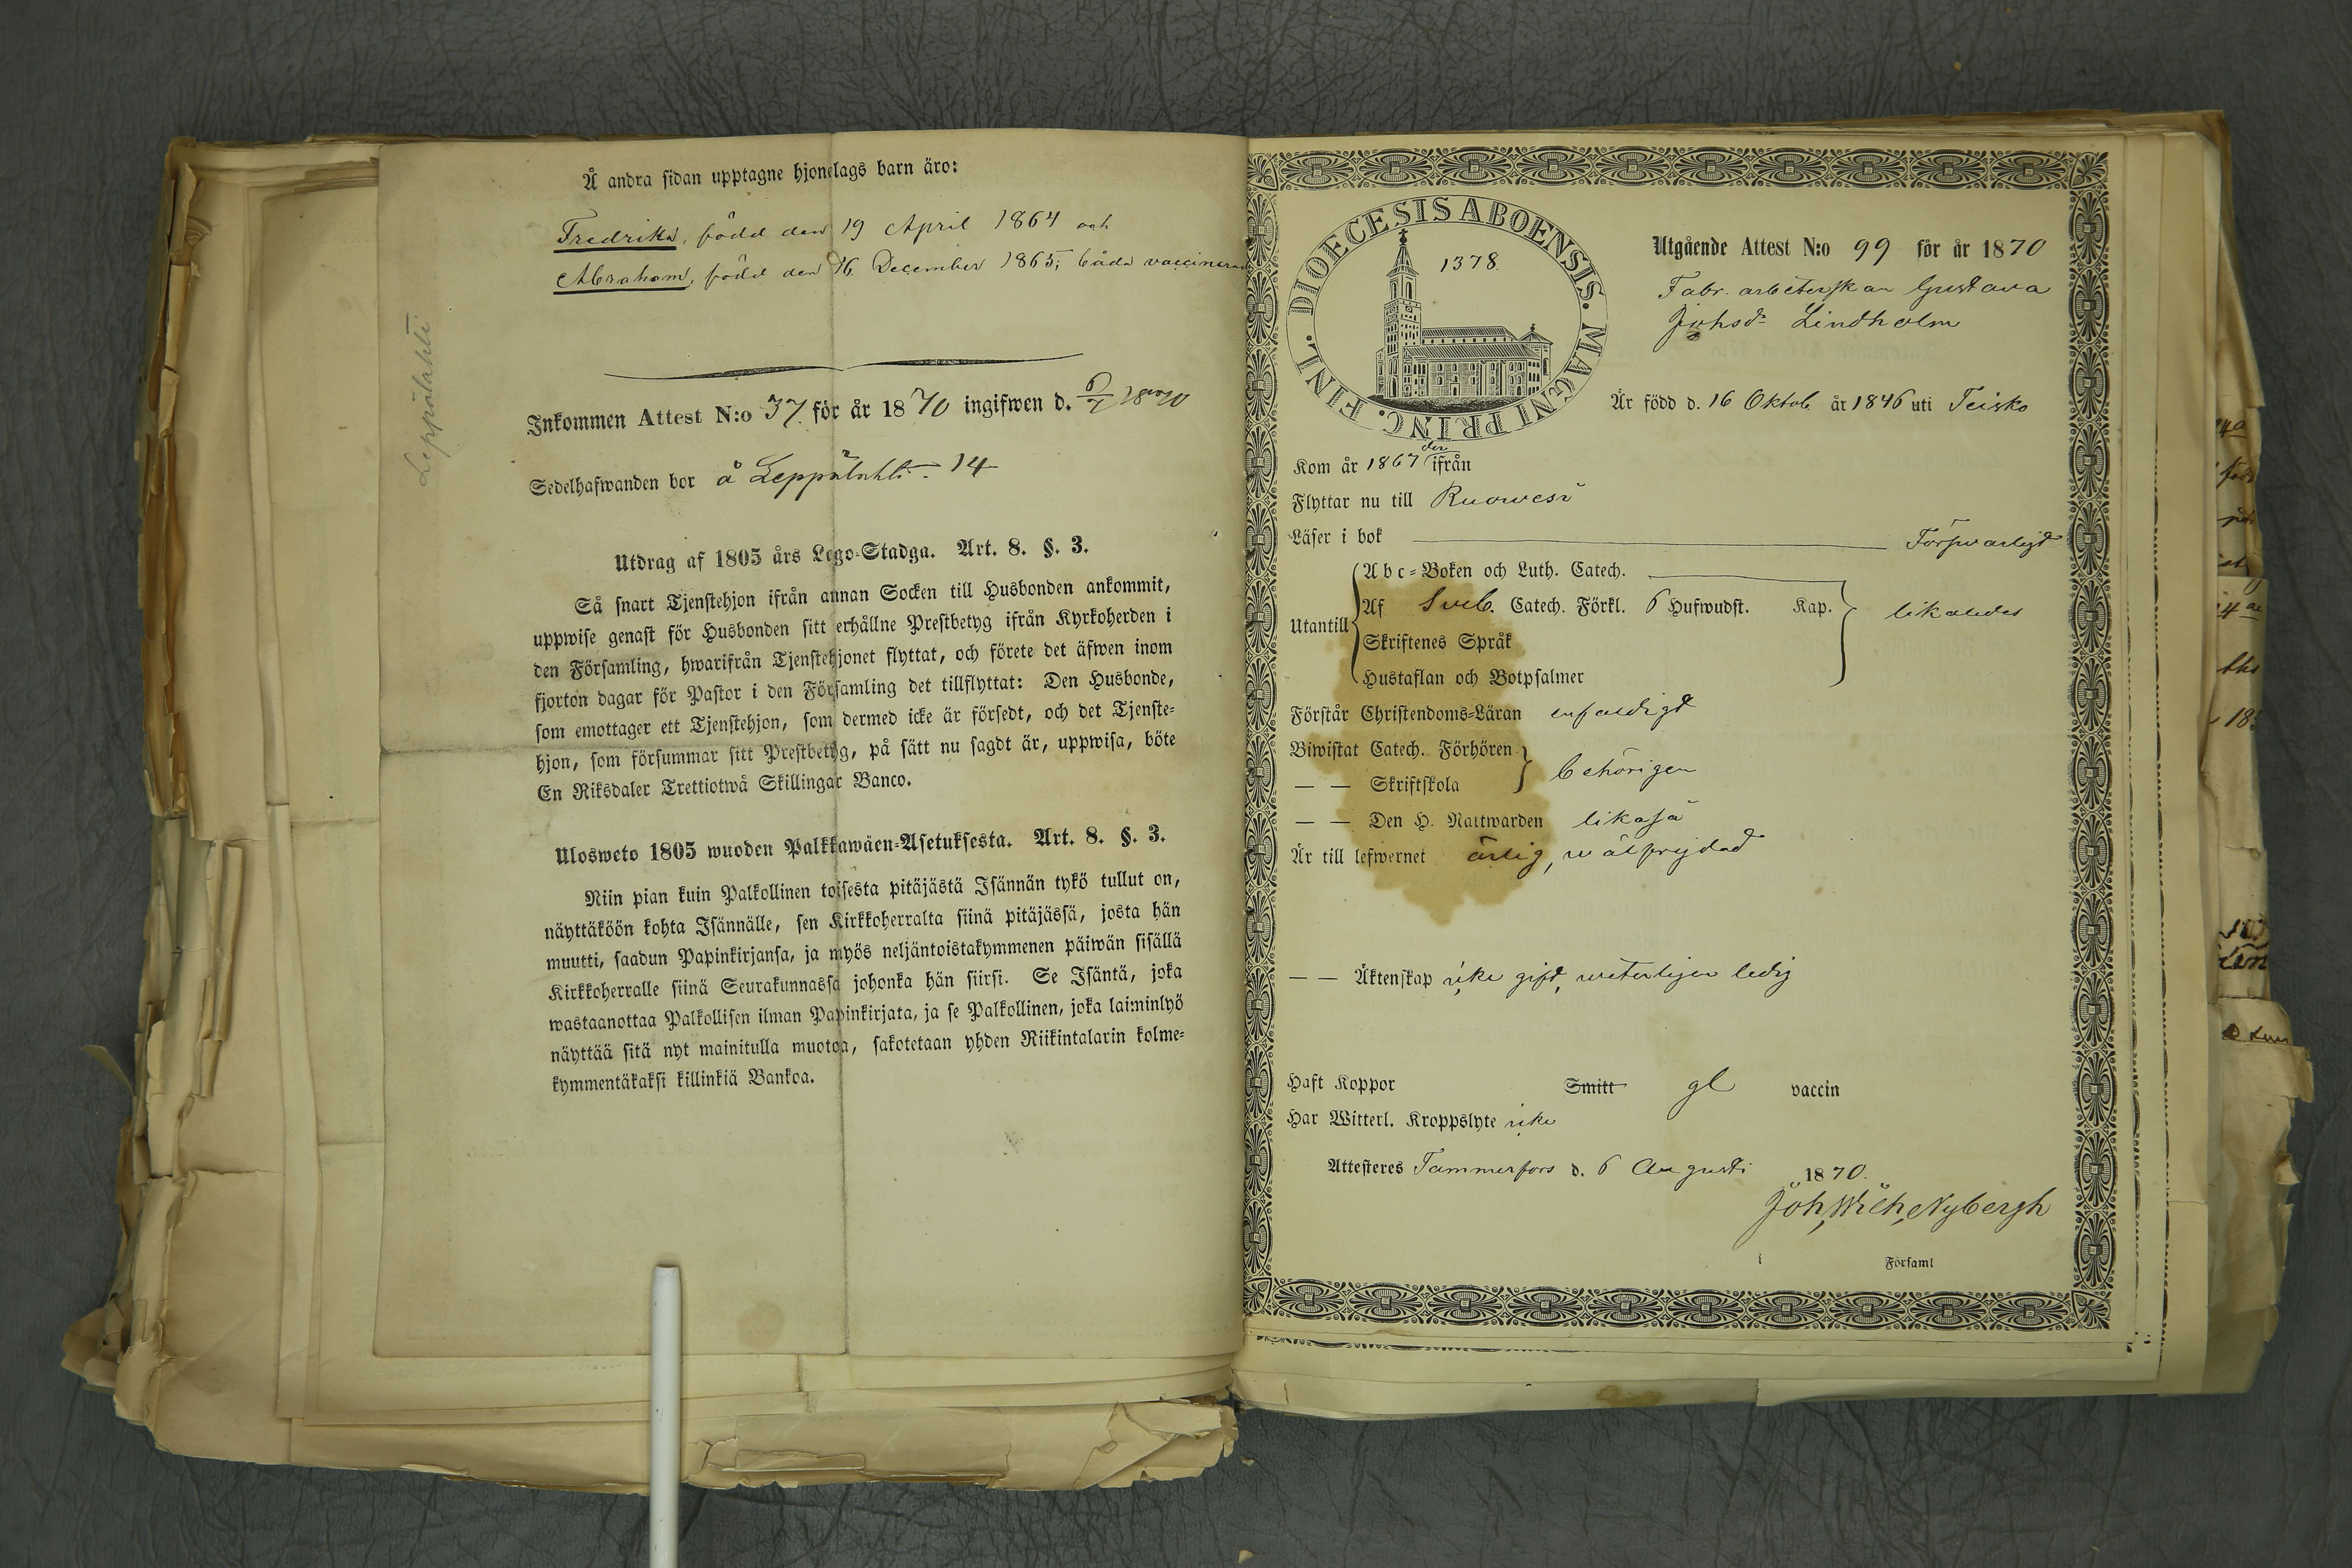 Å andra sidan upptagne hjonelags barn äro:
Fredrika, född den 19 April 1864 och
Abraham, född den 16 December 1865; båda vaccinerad
Leppälahti
Inkommen Attest N:o 37 för år 1870 ingifwen d.
Sedelhafwanden bor å Leppälahti. 14
Utdrag af 1805 års Lego-Stadga. Art. 8. §. 3.
Så snart Tjenstehjon ifrån annan Socken till Husbonden ankommit,
uppwise genast för Husbonden sitt erhållne Prestbetyg ifrån Kyrkoherden i
den Församling, hwarifrån Tjenstehjonet flyttat, och förete det äfwen inom
fjorton dagar för Pastor i den Församling det tillflyttat: Den Husbonde,
som emottager ett Tjenstehjon, som dermed icke är försedt, och det Tjenste-
hjon, som försummar sitt Prestbetyg, på sätt nu sagdt är, uppwisa, böte
En Riksdaler Trettiotwå Skillingar Banco.
Ulosweto 1805 wuoden Palkkawäen-Asetuksesta. Art. 8. §. 3.
Niin pian kuin Palkollinen toisesta pitäjästä Isännän tykö tullut on,
näyttäköön kohta Isännälle, sen Kirkkoherralta siinä pitäjässä, josta hän
muutti, saadun Papinkirjansa, ja myös neljäntoistakymmenen päiwän sisällä
Kirkkoherralle siinä Seurakunnassa johonka hän siirsi. Se Isäntä, joka
wastaanottaa Palkollisen ilman Papinkirjata, ja se Palkollinen, joka laiminlyö
näyttää sitä nyt mainitulla muotoa, sakotetaan yhden Riikintalarin kolme-
kymmentäkaksi killinkiä Bankoa.
DIOECESIS ABOENSIS. MAGNI PRINC. FINL.
1378.
Utgående Attest N:o 99 för år 1870
Fabr. arbeterskan Gustava
Johsdr Lindholm
Är född d. 16 Oktob. år 1846 uti Teisko
Kom år 1867 der ifrån
Flyttar nu till Ruovesi
Läser i bok Försvarligt
Utantill
Abc-Boken och Luth. Catech.
Af Sveb. Catech. Förkl. 6 Hufwudst. Kap. likaledes
Skriftenes Språk
Hustaflan och Botpsalmer
Förstår Christendoms-Läran enfaldigt
Biwistat Catech. Förhören
— — Skriftskola behörigen
— — Den H. Nattwarden likaså
Är till lefwernet ärlig, wälfrejdad
— — Äktenskap icke gift, weterligen ledig
Haft Koppor Smitt gl vaccin
Har Witterl. Kroppslyte icke
Attesteres Tammerfors d. 6 Augusti 1870.
Joh, Wilh, Nybergh
Församl